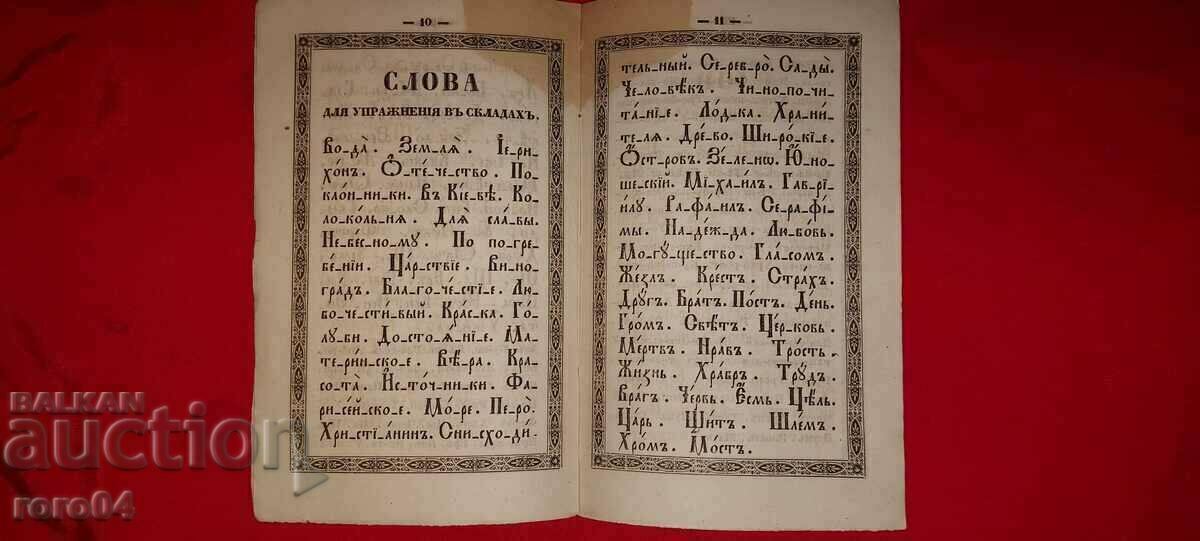 — 10 —
СЛОВА
ДЛЯ УПРАЖНЕНІЯ ВЪ СКЛАДАХЪ.
Во-да̀. Зем-лѧ̀. Іе-ри-
хо́нъ. Ѻ-те́-че-ство. По-
кло́н-ни-ки. Въ Кі́е-вѣ. Ко-
ло-ко́ль-нѧ. Длѧ сла́-вы.
Не-бе́с-но-му. По по-гре-
бе́-нїи. Ца́р-ствіе. Ви-но-
гра́дъ. Бла-го-че́-стї-е. Лю-
бо-че-сти́-вый. Кра́с-ка. Го́-
лу-би. До-сто-ѧ́-нї-е. Ма-
те-ри́н-ско-е. Вѣ́-ра. Кра-
со-та̀. Ис-то́ч-ни-ки. Фа-
ри-се́й-ско-е. Мо́-ре. Пе-ро̀.
Хри-стї-а́нинъ. Снис-хо-ди́-
— 11 —
тель-ный. Се-реб-ро̀. Са-ды̀.
Че-ло-вѣ́къ. Чи-но-по-чи-
та́-нї-е. Ло́д-ка. Хра-ни́-
те-лѧ. Дре́-во. Ши-ро́-кї-е.
Ѻ́ст-ровъ. Зе́-ле-нѡ. Ю́-но-
ше-скїй. Мі-ха-и́лъ. Гав-рї-
и́лу. Ра-фа́-илъ. Се-ра-фі́-
мы. На-де́ж-да. Лю-бо́вь.
Мо-гу́-ще-ство. Гла́-сомъ.
Же́злъ. Кре́стъ. Стра́хъ.
Дру́гъ. Бра́тъ. По́стъ. День.
Гро́мъ. Свѣ́тъ. Це́р-ковь.
Ме́ртвъ. Нра́въ. Тро́сть.
Жи́знь. Хра́бръ. Тру́дъ.
Вра́гъ. Че́рвь. Е́смь. Цѣ́ль.
Ца́рь. Щи́тъ. Шле́мъ.
Хро́мъ. Мо́стъ.
BALKAN
auction
roro04